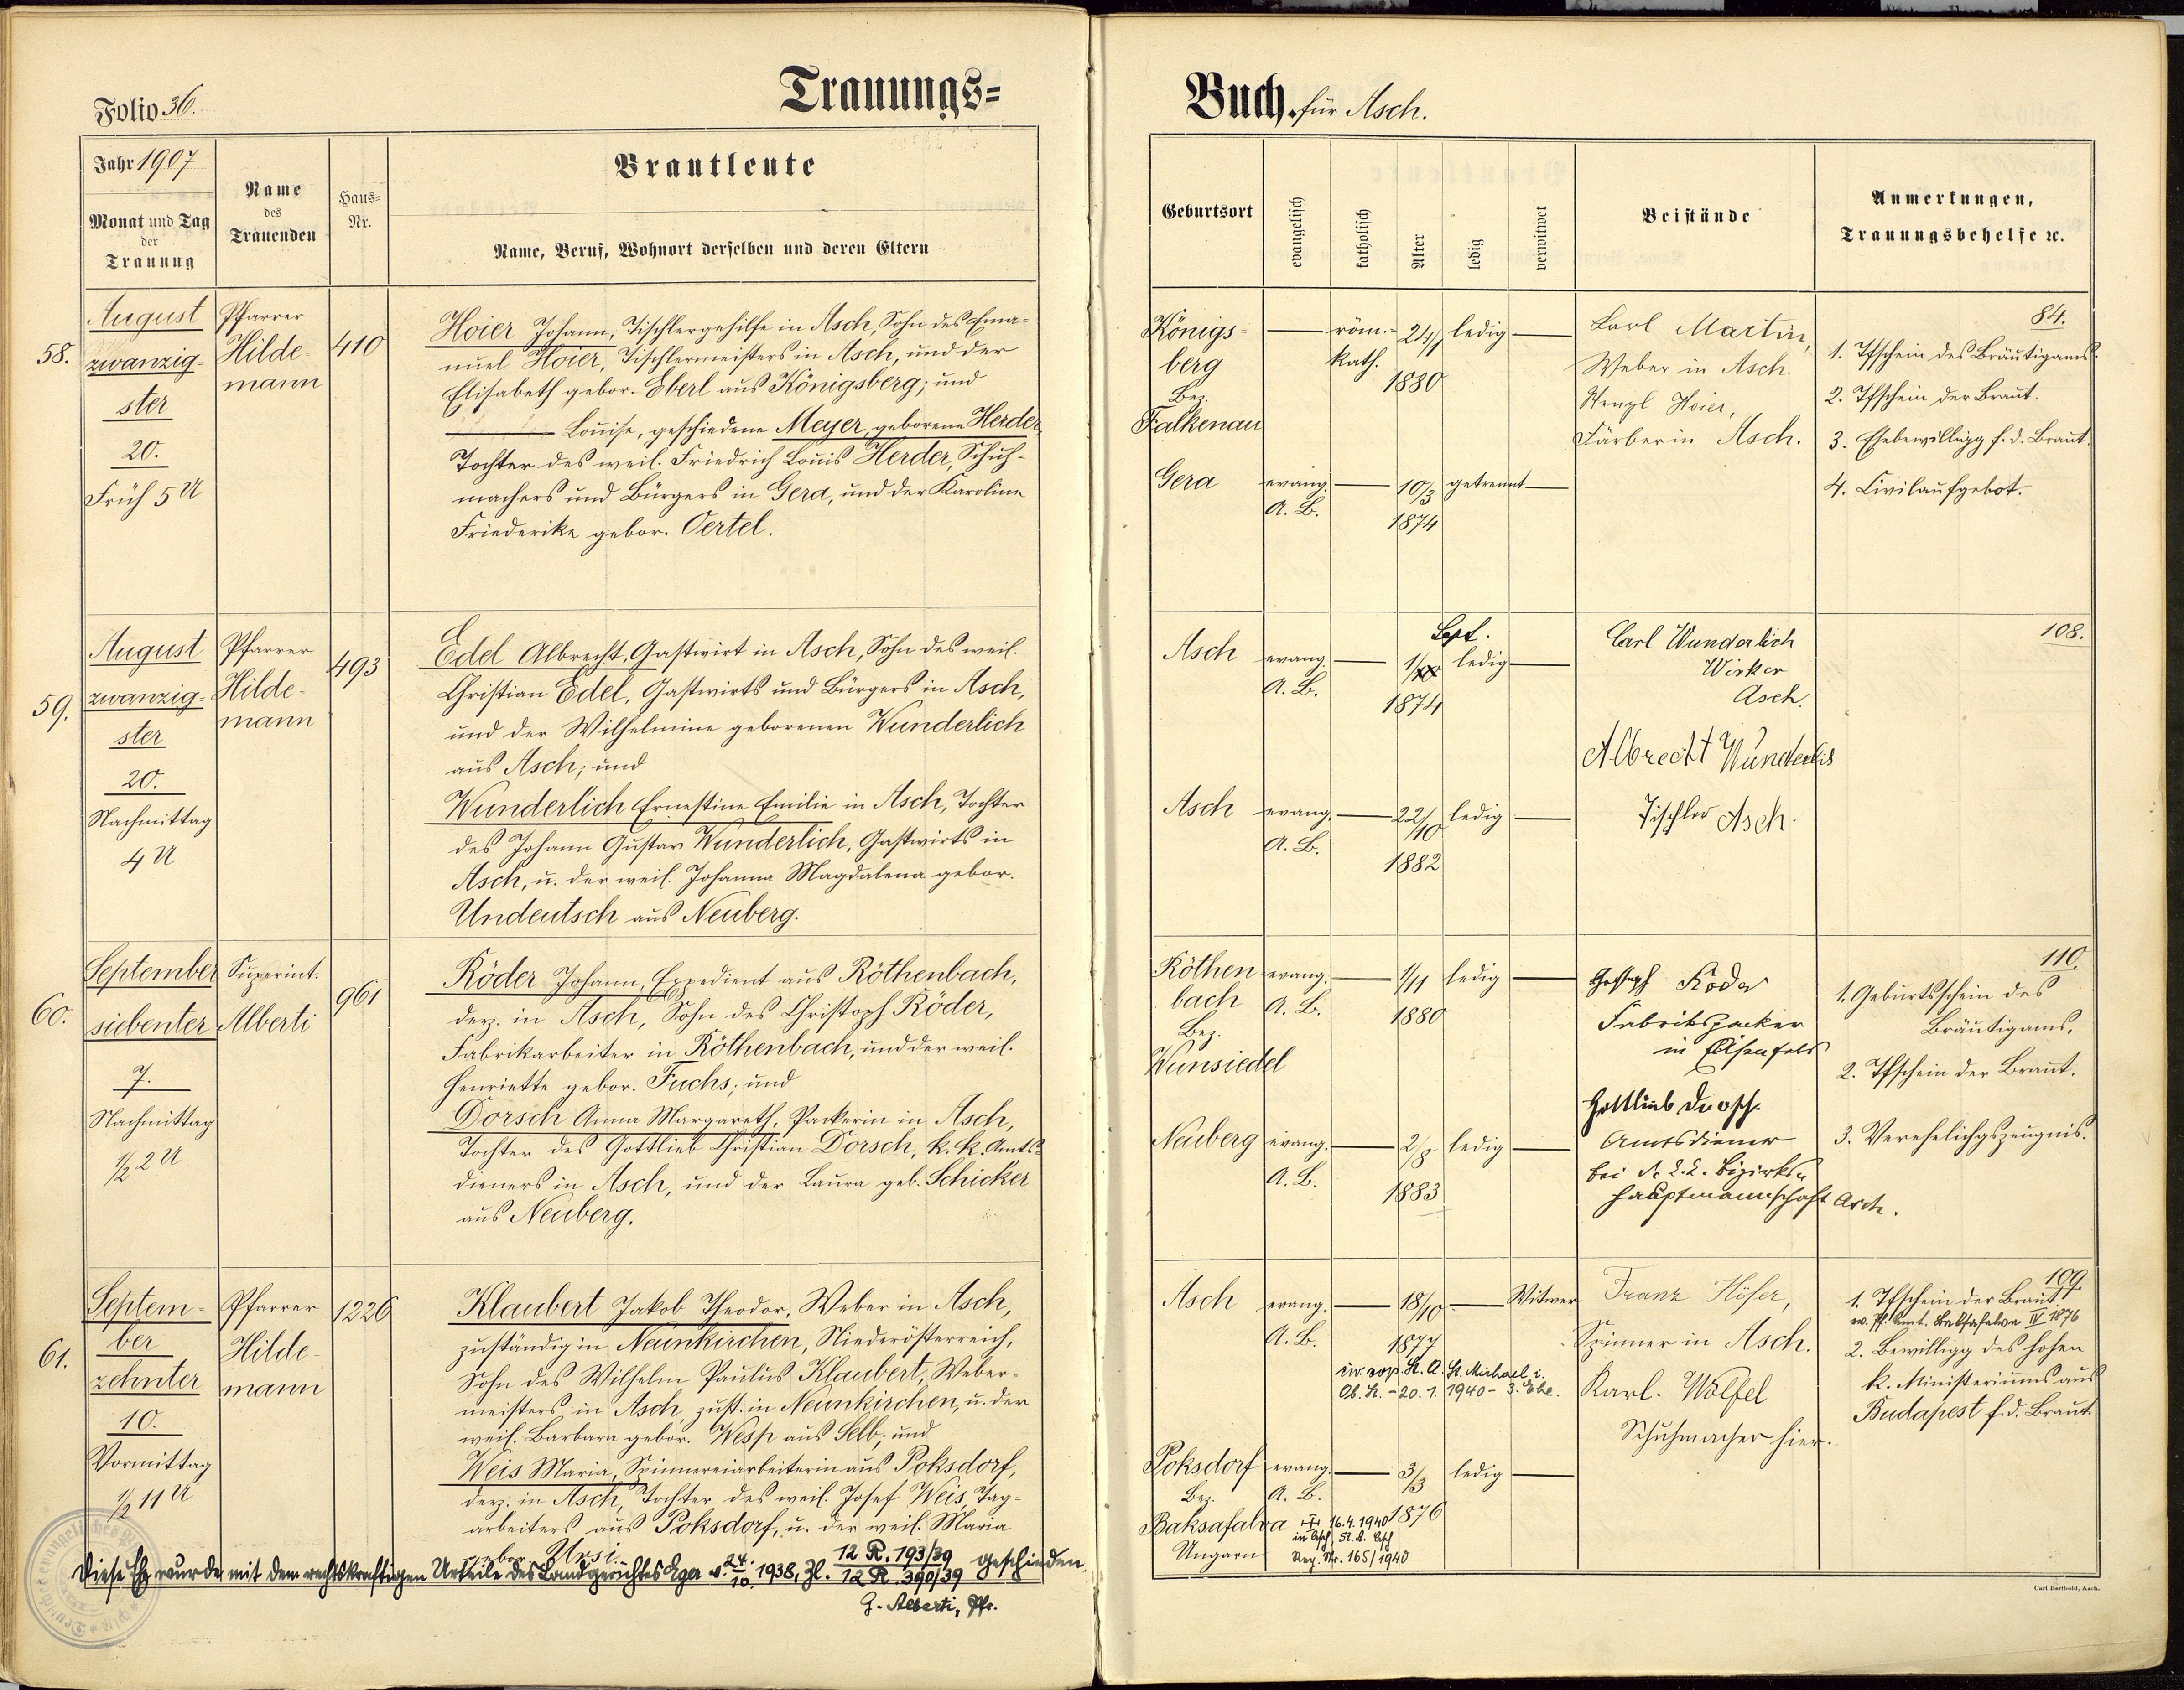 Folio 36.
Trauungs=
Jahr 1907
Monat und Tag
der
Trauung
Name
des
Trauenden
Haus=
Nr.
Brautleute
Name, Beruf, Wohnort derselben und deren Eltern
58.
August
zwanzig-
ster
20.
Früh 5 U
Pfarrer
Hilde-
mann
410
Hoier Johann, Tischlergehilfe in Asch, Sohn des Ema-
nuel Hoier, Tischlermeisters in Asch, und der
Elisabeth gebor. Eberl aus Königsberg; und
Louise, geschiedene Meyer, geborene Herder,
Tochter des weil. Friedrich Louis Herder, Schuh-
machers und Bürgers in Gera, und der Karoline
Friederike gebor. Oertel.
59.
August
zwanzig-
ster
20.
Nachmittag
4 U
Pfarrer
Hilde-
mann
493
Edel Albrecht, Gastwirt in Asch, Sohn des weil.
Christian Edel, Gastwirts und Bürgers in Asch,
und der Wilhelmine geborenen Wunderlich
aus Asch; und
Wunderlich Ernestine Emilie in Asch, Tochter
des Johann Gustav Wunderlich, Gastwirts in
Asch, u. der weil. Johanna Magdalena gebor.
Undeutsch aus Neuberg.
60.
September
siebenter
7.
Nachmittag
1/2 2 U
Superint.
Alberti
961
Röder Johann, Expedient aus Röthenbach,
derz. in Asch, Sohn des Christoph Röder,
Fabrikarbeiter in Röthenbach, und der weil.
Henriette gebor. Fuchs; und
Dorsch Anna Margareth, Packerin in Asch,
Tochter des Gottlieb Christian Dorsch, k. k. Amts-
dieners in Asch, und der Laura geb. Schicker
aus Neuberg.
61.
Septem-
ber
zehnter
10.
Vormittag
1/2 11 U
Pfarrer
Hilde-
mann
1226
Klaubert Jakob Theodor, Weber in Asch,
zuständig in Neunkirchen, Niederösterreich,
Sohn des Wilhelm Paulus Klaubert, Weber-
meisters in Asch, zust. in Neunkirchen, u. der
weil. Barbara gebor. Wesp aus Selb; und
Weis Maria, Spinnereiarbeiterin aus Poksdorf,
derz. in Asch, Tochter des weil. Josef Weis, Tag-
arbeiters aus Poksdorf, u. der weil. Maria
gebor. Ursi.
Diese Ehe wurde mit dem rechtskräftigen Urteile des Landgerichtes Eger v. 24./10. 1938, Zl. 12 R. 193/39 12 R. 390/39 geschieden.
G. Alberti, Pfr.
Buch. für Asch.
Geburtsort
evangelisch
katholisch
Alter
ledig
verwitwet
Beistände
Anmerkungen,
Trauungsbehelfe ec.
Königs-
berg
Bez.
Falkenau
röm.-
kath.
24/1
1880
ledig
Karl Martin,
Weber in Asch.
Wenzl Hoier,
Färber in Asch.
84.
1. Tfschein des Bräutigams.
2. Tfschein der Braut.
3. Ehebewilligg f. d. Braut.
4. Civilaufgebot.
Gera
evang.
A. B.
10/3
1874
getrennt
Asch
evang.
A. B.
Sept.
1874
ledig
Carl Wunderlich
Wirker
Asch.
Albrecht Wunderlich
Tischler Asch.
108.
Asch
evang.
A. B.
22/10
1882
ledig
Röthen
bach
Bez.
Wunsiedel
evang.
A. B.
1/11
1880
ledig
Röder
Fabrikspacker
in
Gottlieb Dorsch
Amtsdiener
bei d. k. k. Bezirks-
hauptmannschaft Asch.
110.
1. Geburtsschein des
Bräutigams.
2. Tfschein der Braut.
3. Verehelichgszeugnis.
Neuberg
evang.
A. B.
2/8
1883
ledig
Asch
evang.
A. B.
18/10
1877
Witwer
St. A. St. Michael i.
Ob. St. - 20. 1. 1940 - 3. Ehe.
Franz Höfer,
Spinner in Asch.
Karl. Wölfel
Schuhmacher hier.
109.
1. Tfschein der Braut
ev. Pf. Amt. Baksafalva IV 1876
2. Bewilligg des hohen
k. Ministeriums aus
Budapest f. d. Braut.
Poksdorf
Bez.
Baksafalva
Ungarn
evang.
A. B.
3/3
1876
ledig
16. 4. 1940
in Asch, St. A. Asch
Reg. Nr. 165/1940
Carl Berthold, Asch.